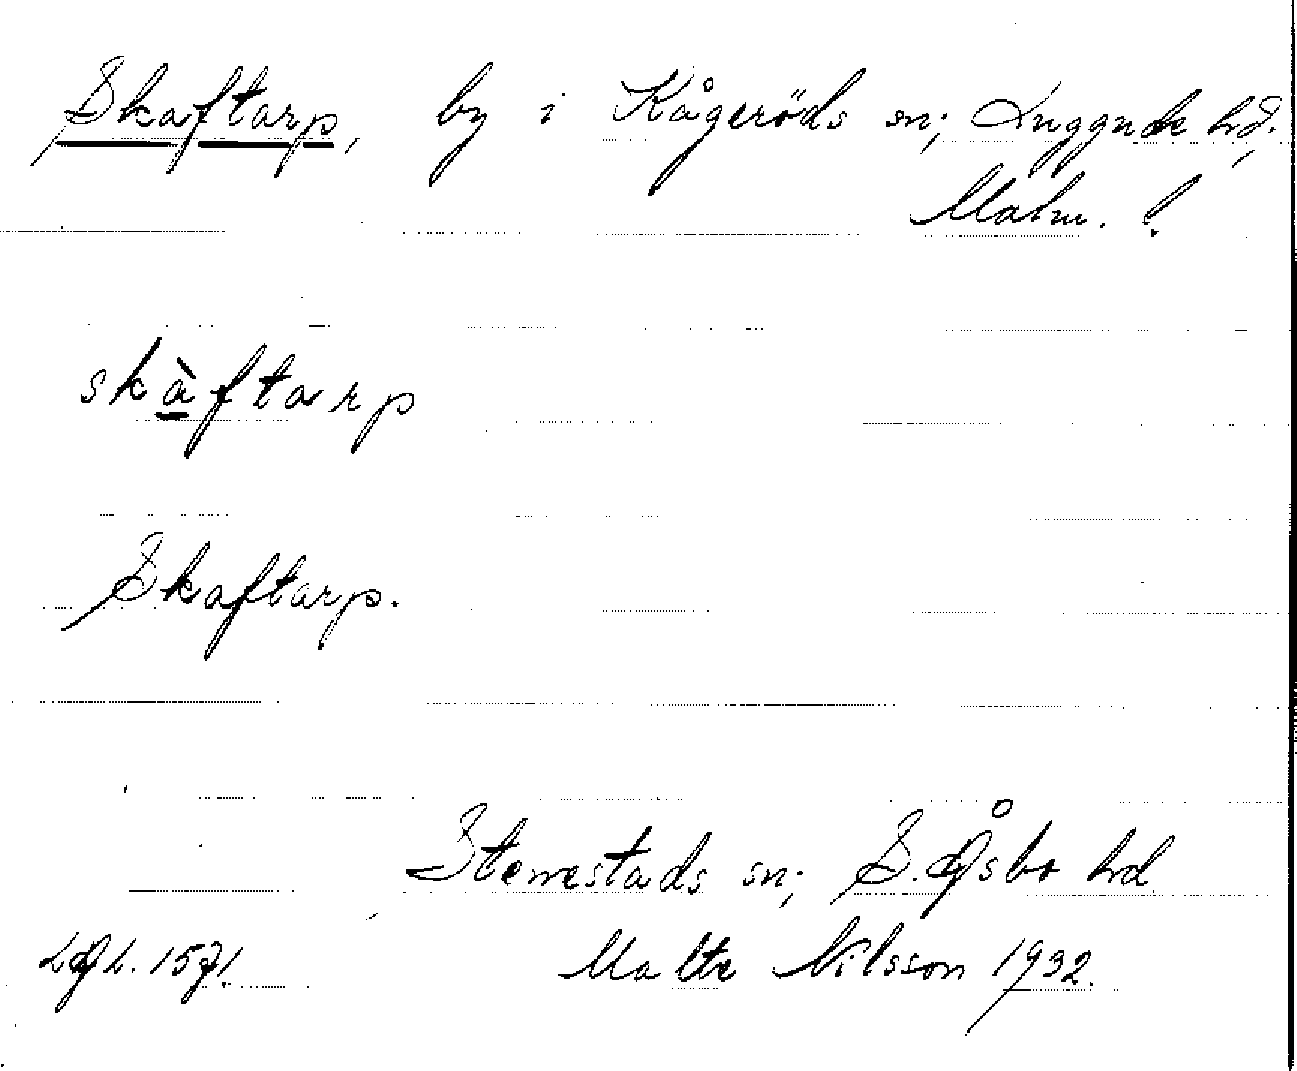 Skaftarp, by i Kågeröds sn; Luggude hd.
Malm. l.
skàftarp
Skaftarp.
Stenestads sn; S. Åsbo hd
LAL. 1571. Malte Nilsson 1932.